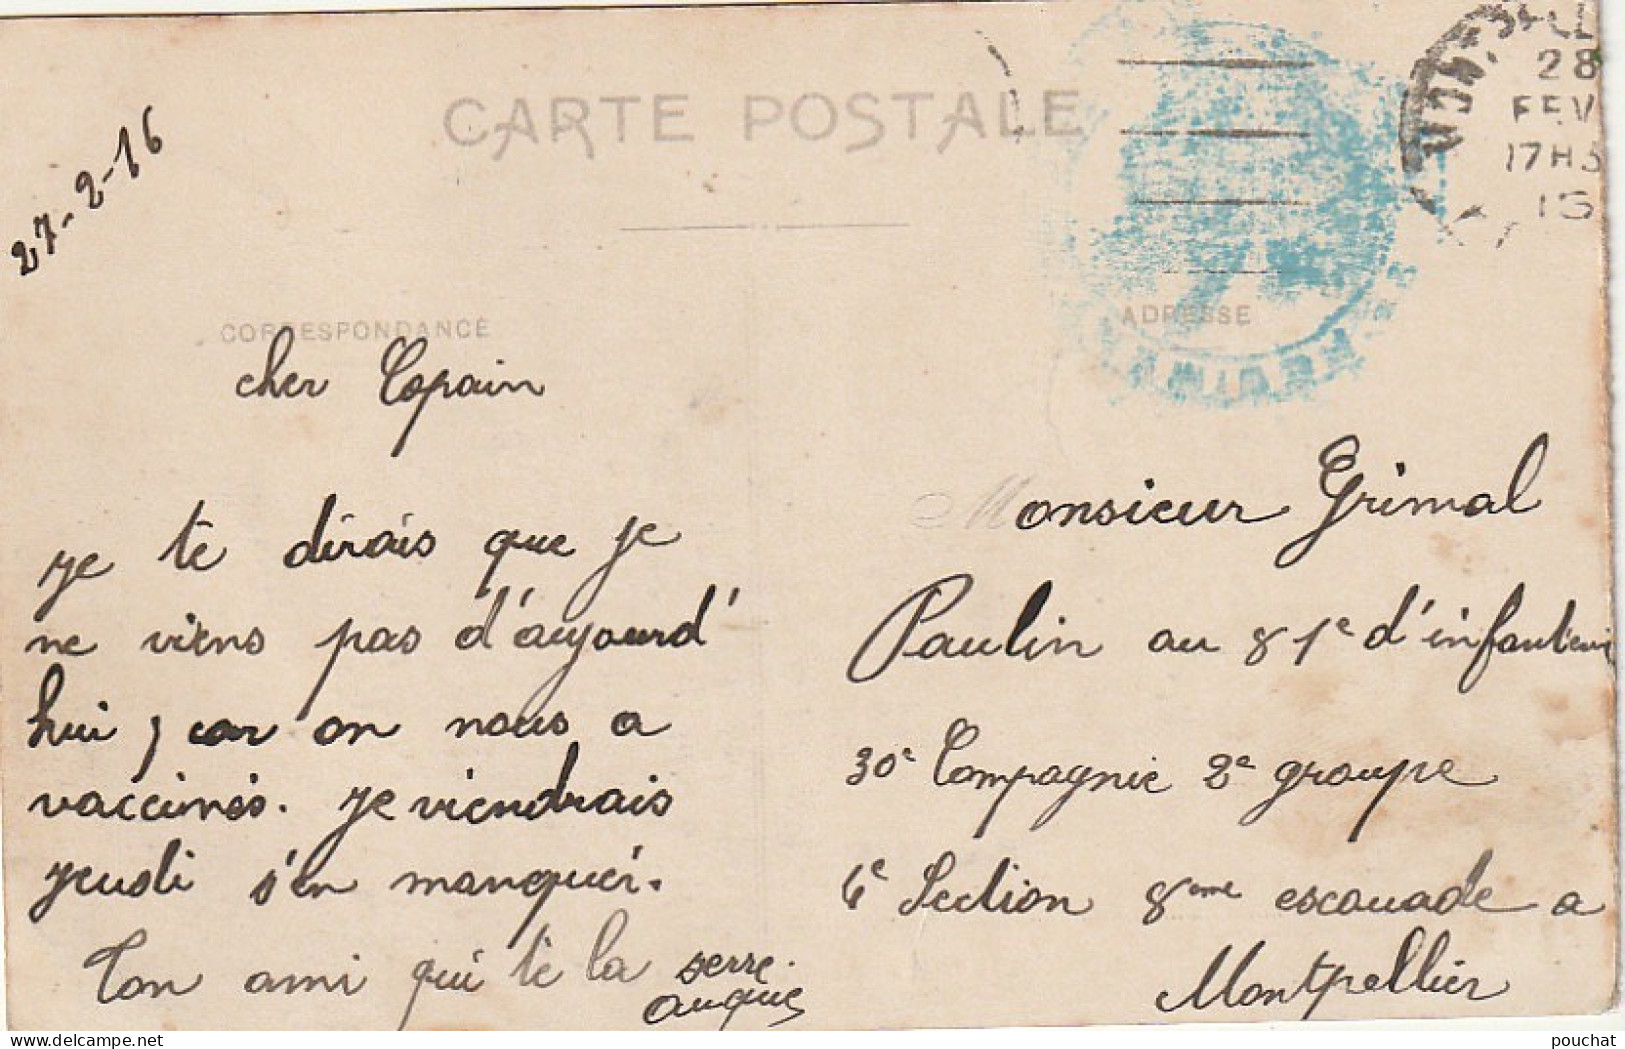 27-2-16
CARTE POSTALE
CORRESPONDANCE
cher Copain
je te dirais que je
ne viens pas d'aujourd'
hui, car on nous a
vaccinés. je viendrais
jeudi s'en manquér.
Ton ami qui te la serre.
ADRESSE
Monsieur Grimal
Paulin au 81e d'infanterie
30e Compagnie 2e groupe
6e Section 8eme escouade a
Montpellier
28
FEV
17H
pouchat